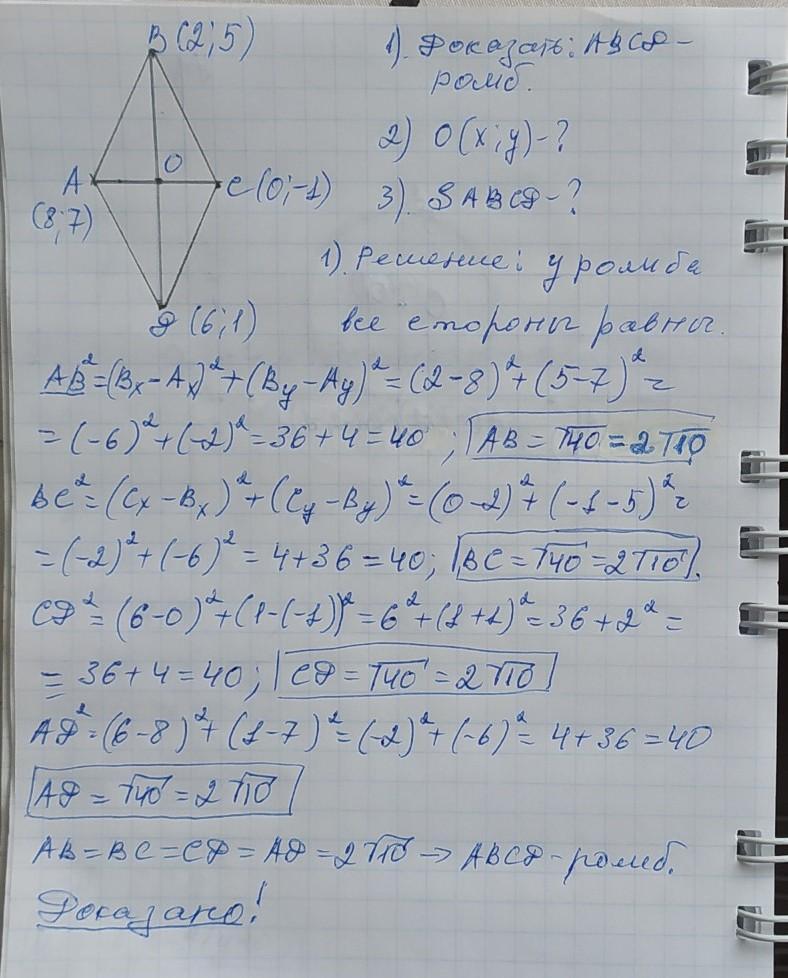 B (2; 5)
1). Доказать: ABCD -
ромб.
2) O(x; y) - ?
A
O
C (0; -1)
(8; 7)
3). SABCD - ?
1). Решение: у ромба
D (6; 1)
все стороны равны.
AB² = (Bx - Ax)² + (By - Ay)² = (2 - 8)² + (5 - 7)² =
= (-6)² + (-2)² = 36 + 4 = 40 ; AB = √40 = 2√10
BC² = (Cx - Bx)² + (Cy - By)² = (0 - 2)² + (-1 - 5)² =
= (-2)² + (-6)² = 4 + 36 = 40; BC = √40 = 2√10.
CD² = (6 - 0)² + (1 - (-1))² = 6² + (1 + 1)² = 36 + 2² =
= 36 + 4 = 40; CD = √40 = 2√10
AD² = (6 - 8)² + (1 - 7)² = (-2)² + (-6)² = 4 + 36 = 40
AD = √40 = 2√10
AB = BC = CD = AD = 2√10 → ABCD - ромб.
Доказано!